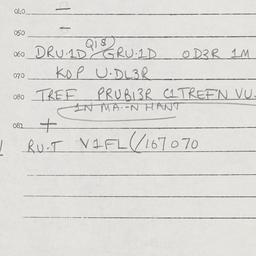 020 —
050 —
Q13)
060 DRU·1D GRU·1D OD3R 1M
070 KOP U·DL3R
080 TREF PRUBI3R C1TREFN VU
1N MA·-N HANT
082 +
RU·T V1FL(/167070